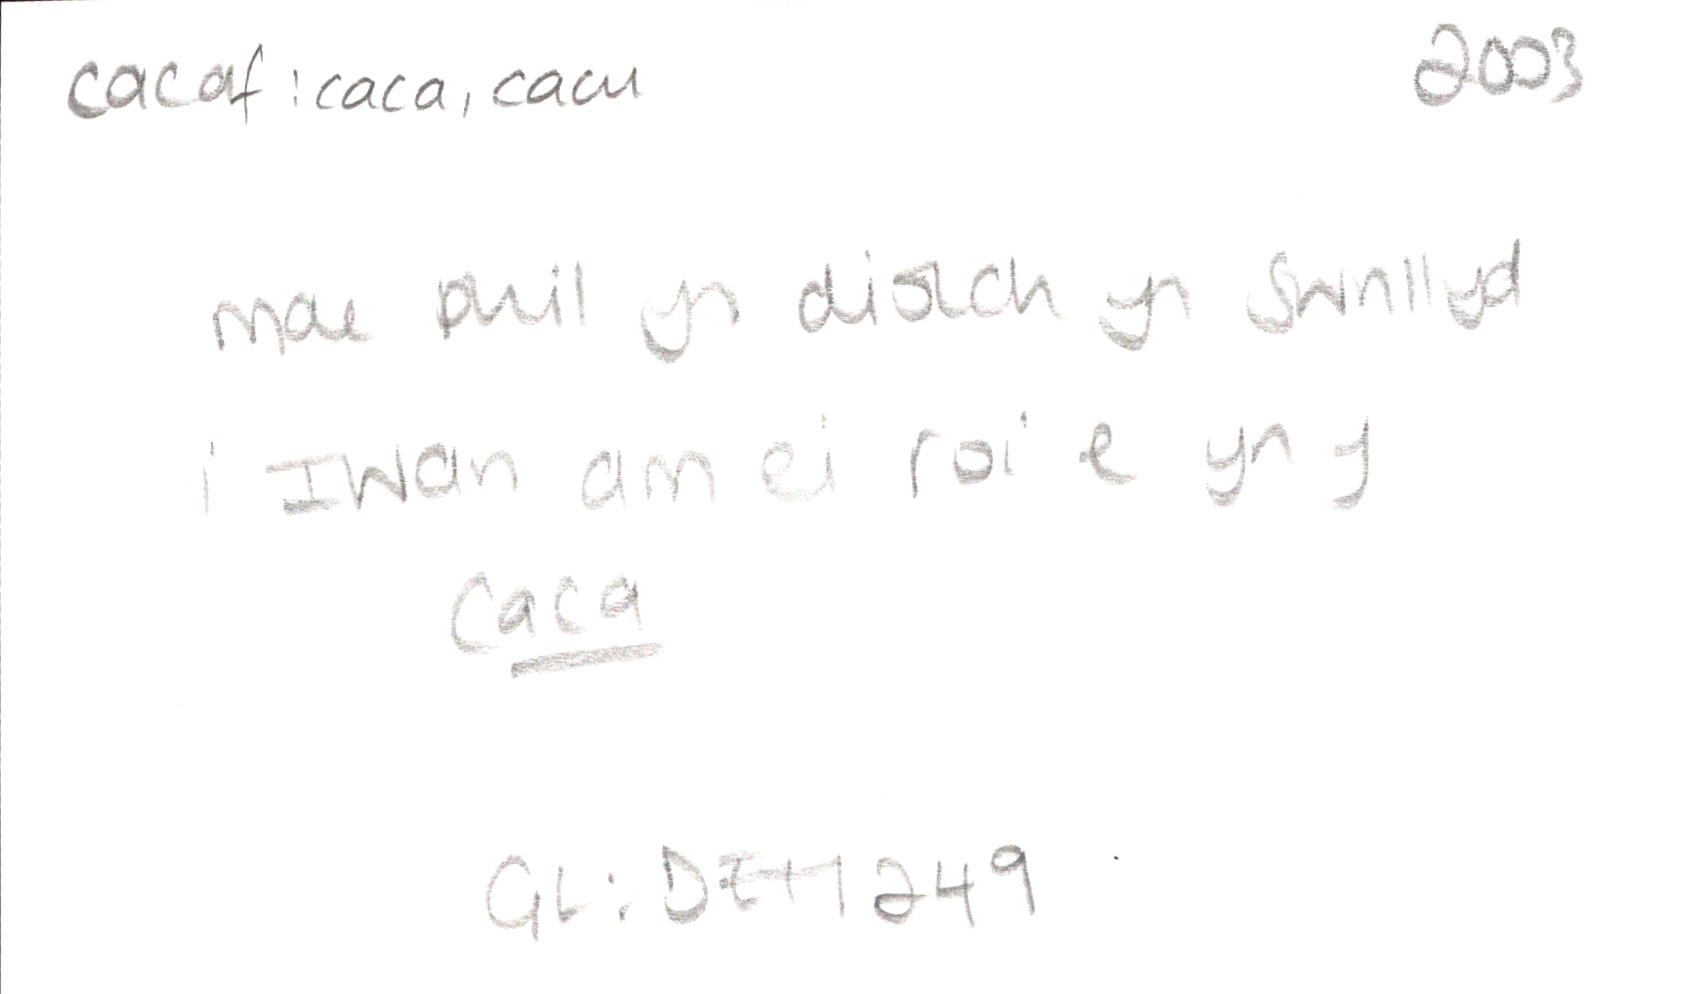 cacaf: caca, cacu 2003
mae Phil yn diolch yn swnllyd
i Iwan am ei roi e yn y
caca
GL: DEH 249